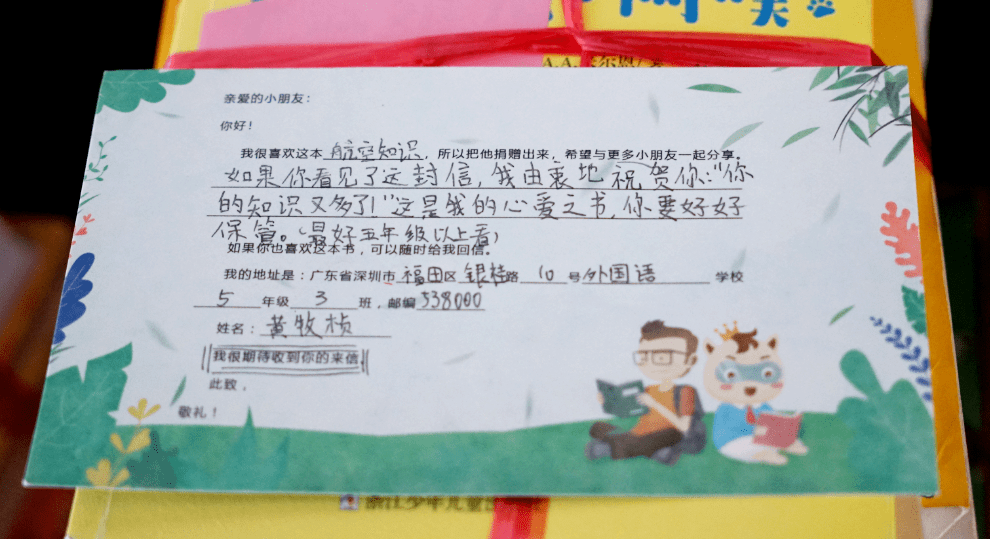 A.A.
亲爱的小朋友：
你好！
我很喜欢这本 航空知识，所以把他捐赠出来，希望与更多小朋友一起分享。
如果你看见了这封信，我由衷地祝贺你："你
的知识又多了！"这是我的心爱之书，你要好好
保管。（最好五年级以上看）
如果你也喜欢这本书，可以随时给我回信。
我的地址是：广东省深圳市 福田区 银桂路 10 号外国语 学校
5 年级 3 班，邮编 538000
姓名：黄牧桢
我很期待收到你的来信！
此致，
敬礼！
浙江少年儿童出